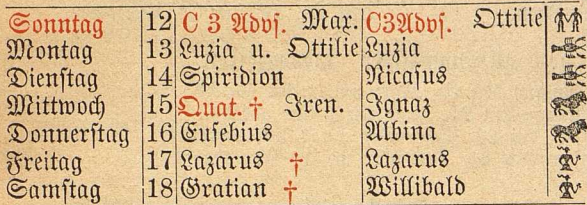 Sonntag 12 C 3 Advſ. Max. C3Advſ. Ottilie
Montag 13 Luzia u. Ottilie Luzia
Dienſtag 14 Spiridion Nicaſus
Mittwoch 15 Quat. † Iren. Ignaz
Donnerſtag 16 Euſebius Albina
Freitag 17 Lazarus † Lazarus
Samſtag 18 Gratian † Willibald